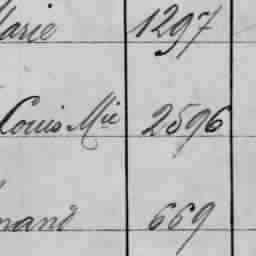 Marie 1297
Louis Mie 2596
nand 669